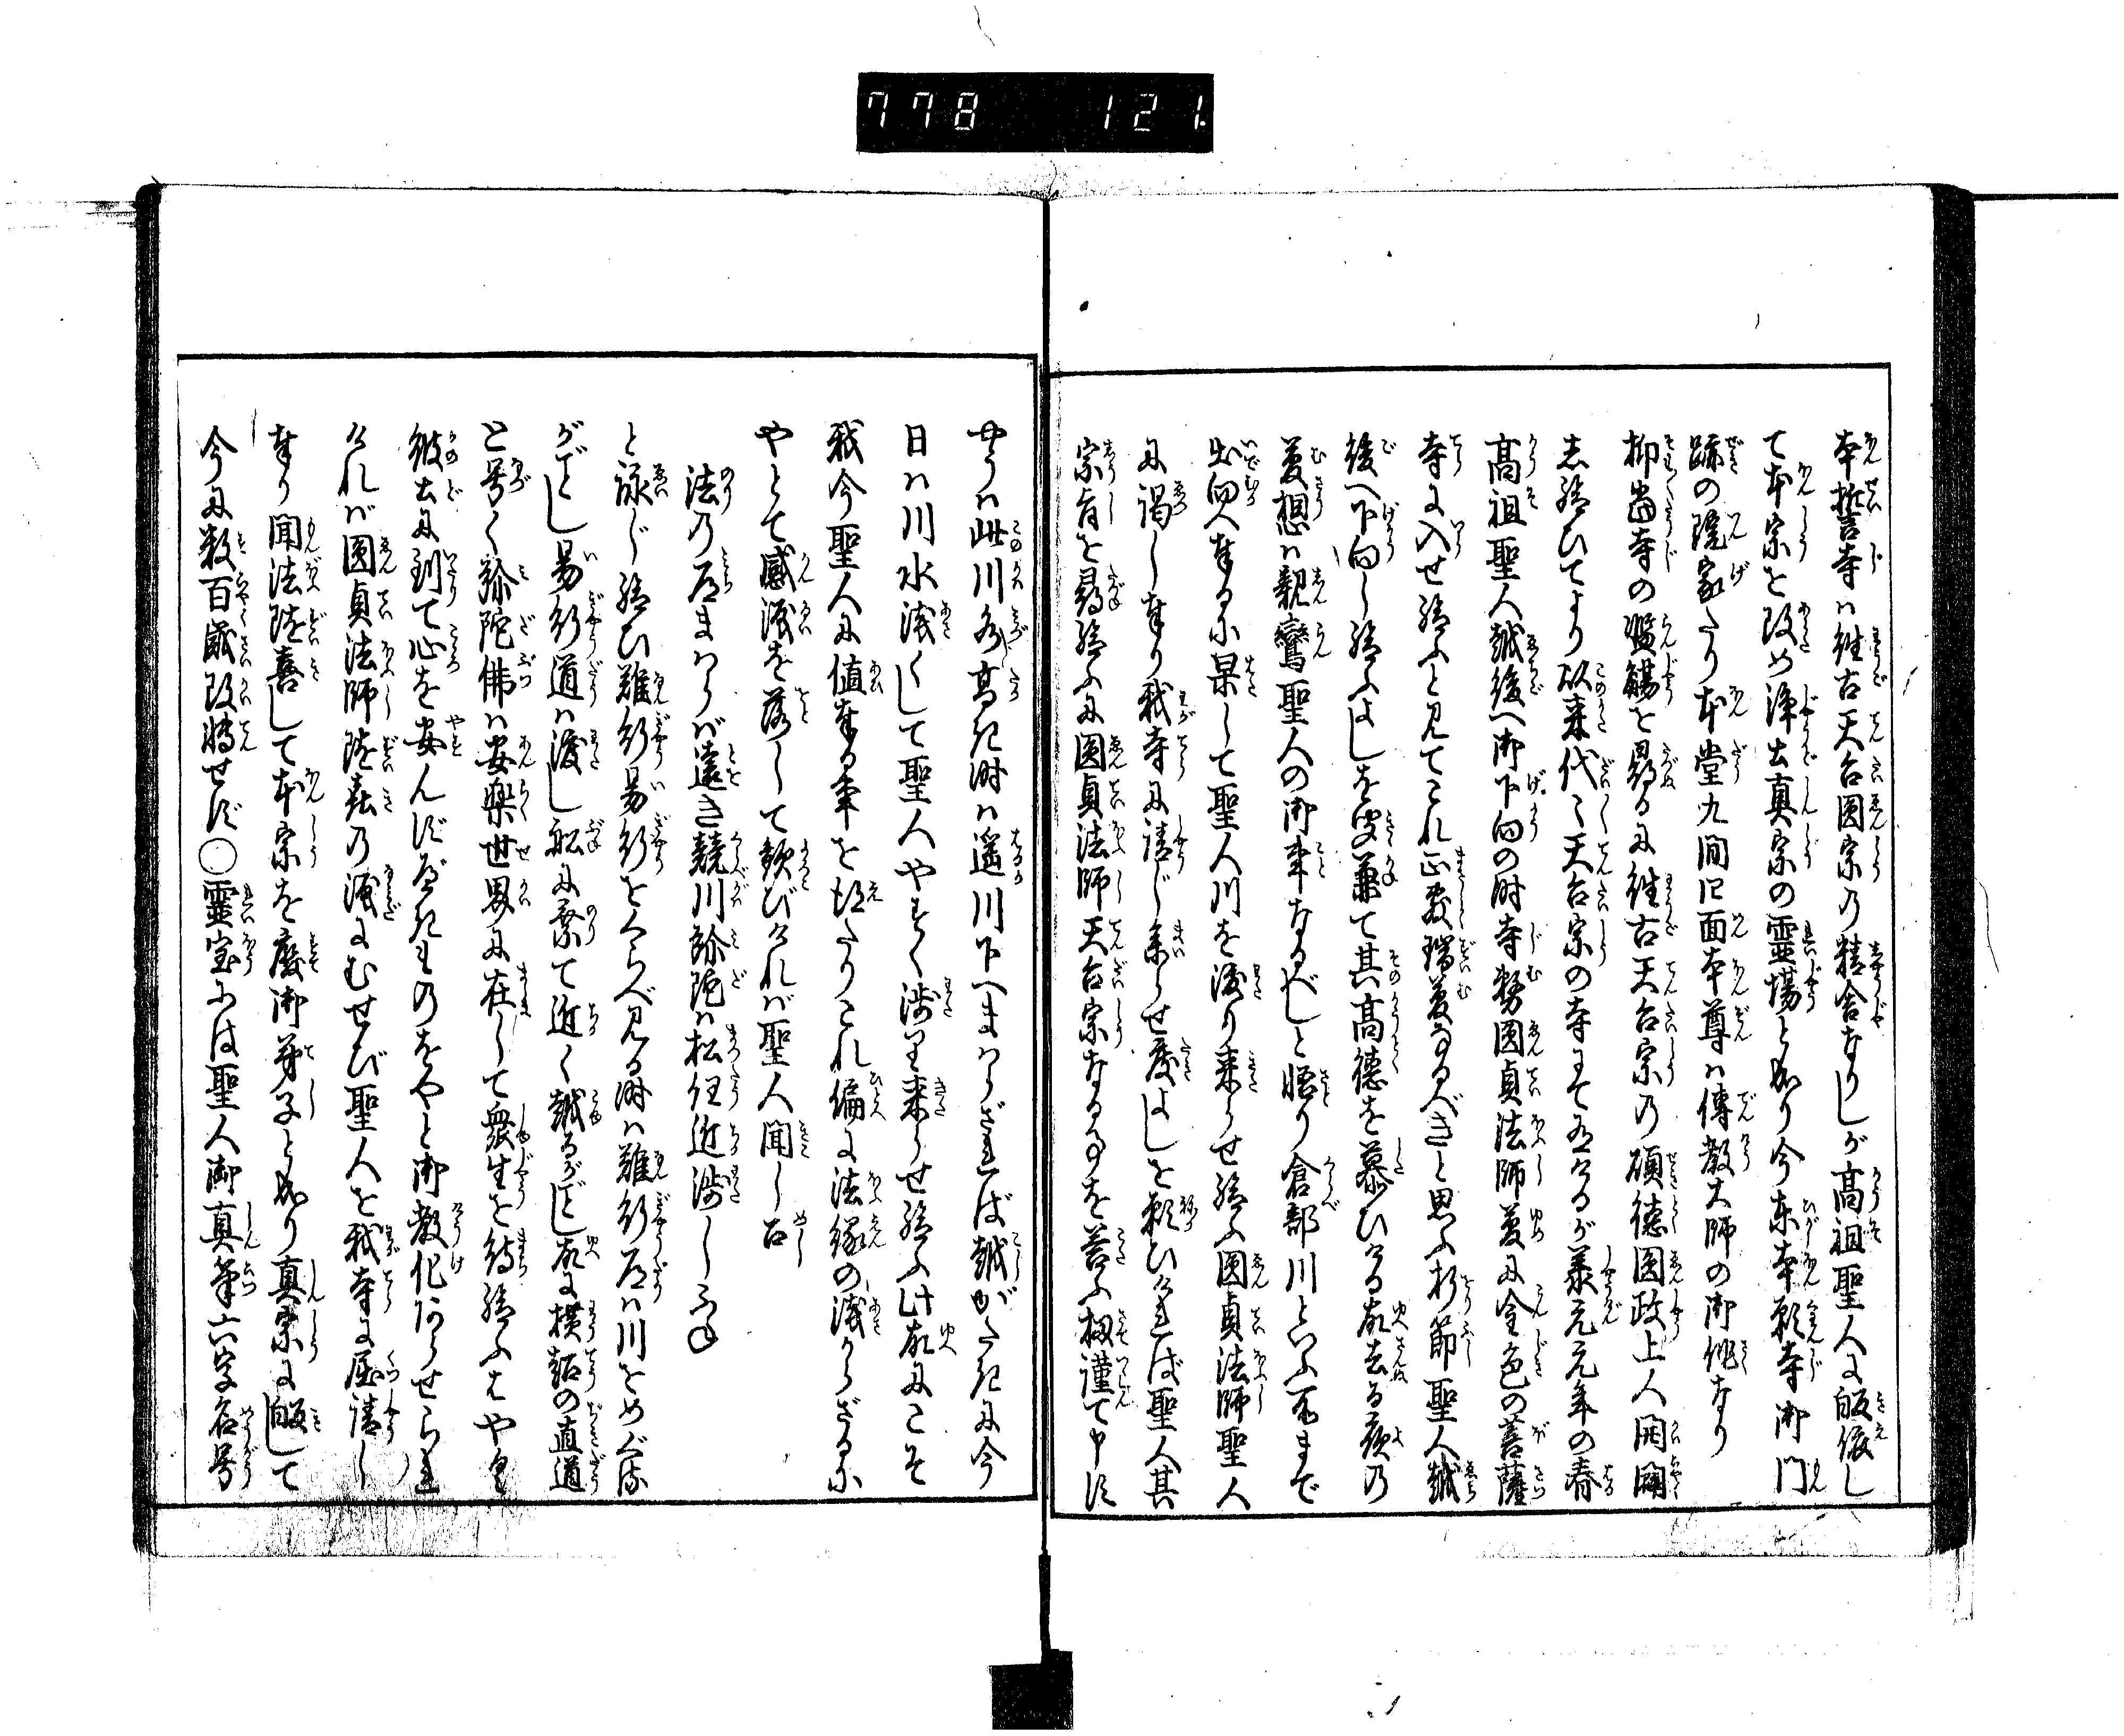 778 121.
本誓寺ハ往古天台圓宗乃精舎なりしが高祖聖人に皈依し
て本宗を改め浄土真宗の霊場と成り今東本願寺御門
跡の院家たり本堂九間四面本尊ハ傳教大師の御作なり
抑當寺の濫觴を尋るに往古天台宗乃碩徳圓政上人開闢
志給ひてより以来代々天台宗の寺にて有けるが承元元年の春
高祖聖人越後へ御下向の時寺務圓貞法師夢に金色の菩薩
寺に入せ給ふと見てこれ正敷瑞夢なるべきと思ふ折節聖人越
後へ下向し給ふよしを聞兼て其高徳を慕ひける故去る夜乃
夢想ハ親鸞聖人の御事なるべしと悟り倉部川といふ所まで
出向へ奉るに果して聖人川を渡り来らせ給ふ圓貞法師聖人
に謁し奉り我寺に請じ参らせ度よしを願ひければ聖人其
宗旨を尋給ふに圓貞法師天台宗なる事を答ふ扨謹て申す
やうハ此川水高き時ハ遥川下へまハらざれば越がたきに今
日ハ川水浅くして聖人やすく渉り来らせ給ふ此故にこそ
我今聖人に値奉る事を得たりこれ偏に法縁の浅からざるに
やとて感涙を落して歓びけれバ聖人聞し召
法乃道まハらバ遠き競川弥陀ハ松任近渉しふね
と詠じ給ひ難行易行をくらべ見る時ハ難行道ハ川をめぐるが
ごとし易行道ハ渡し船に乗て近く越るがごとし故に横超の直道
と号く弥陀佛ハ安楽世界に在して衆生を待給ふはやく
彼土に到て心を安んずべきものをやと御教化ありせられ
けれバ圓貞法師随喜乃涙にむせび聖人を我寺に屈請し
奉り聞法随喜して本宗を廃御弟子と成り真宗に皈して
今に数百歳改轉せず○靈宝には聖人御真筆六字名号